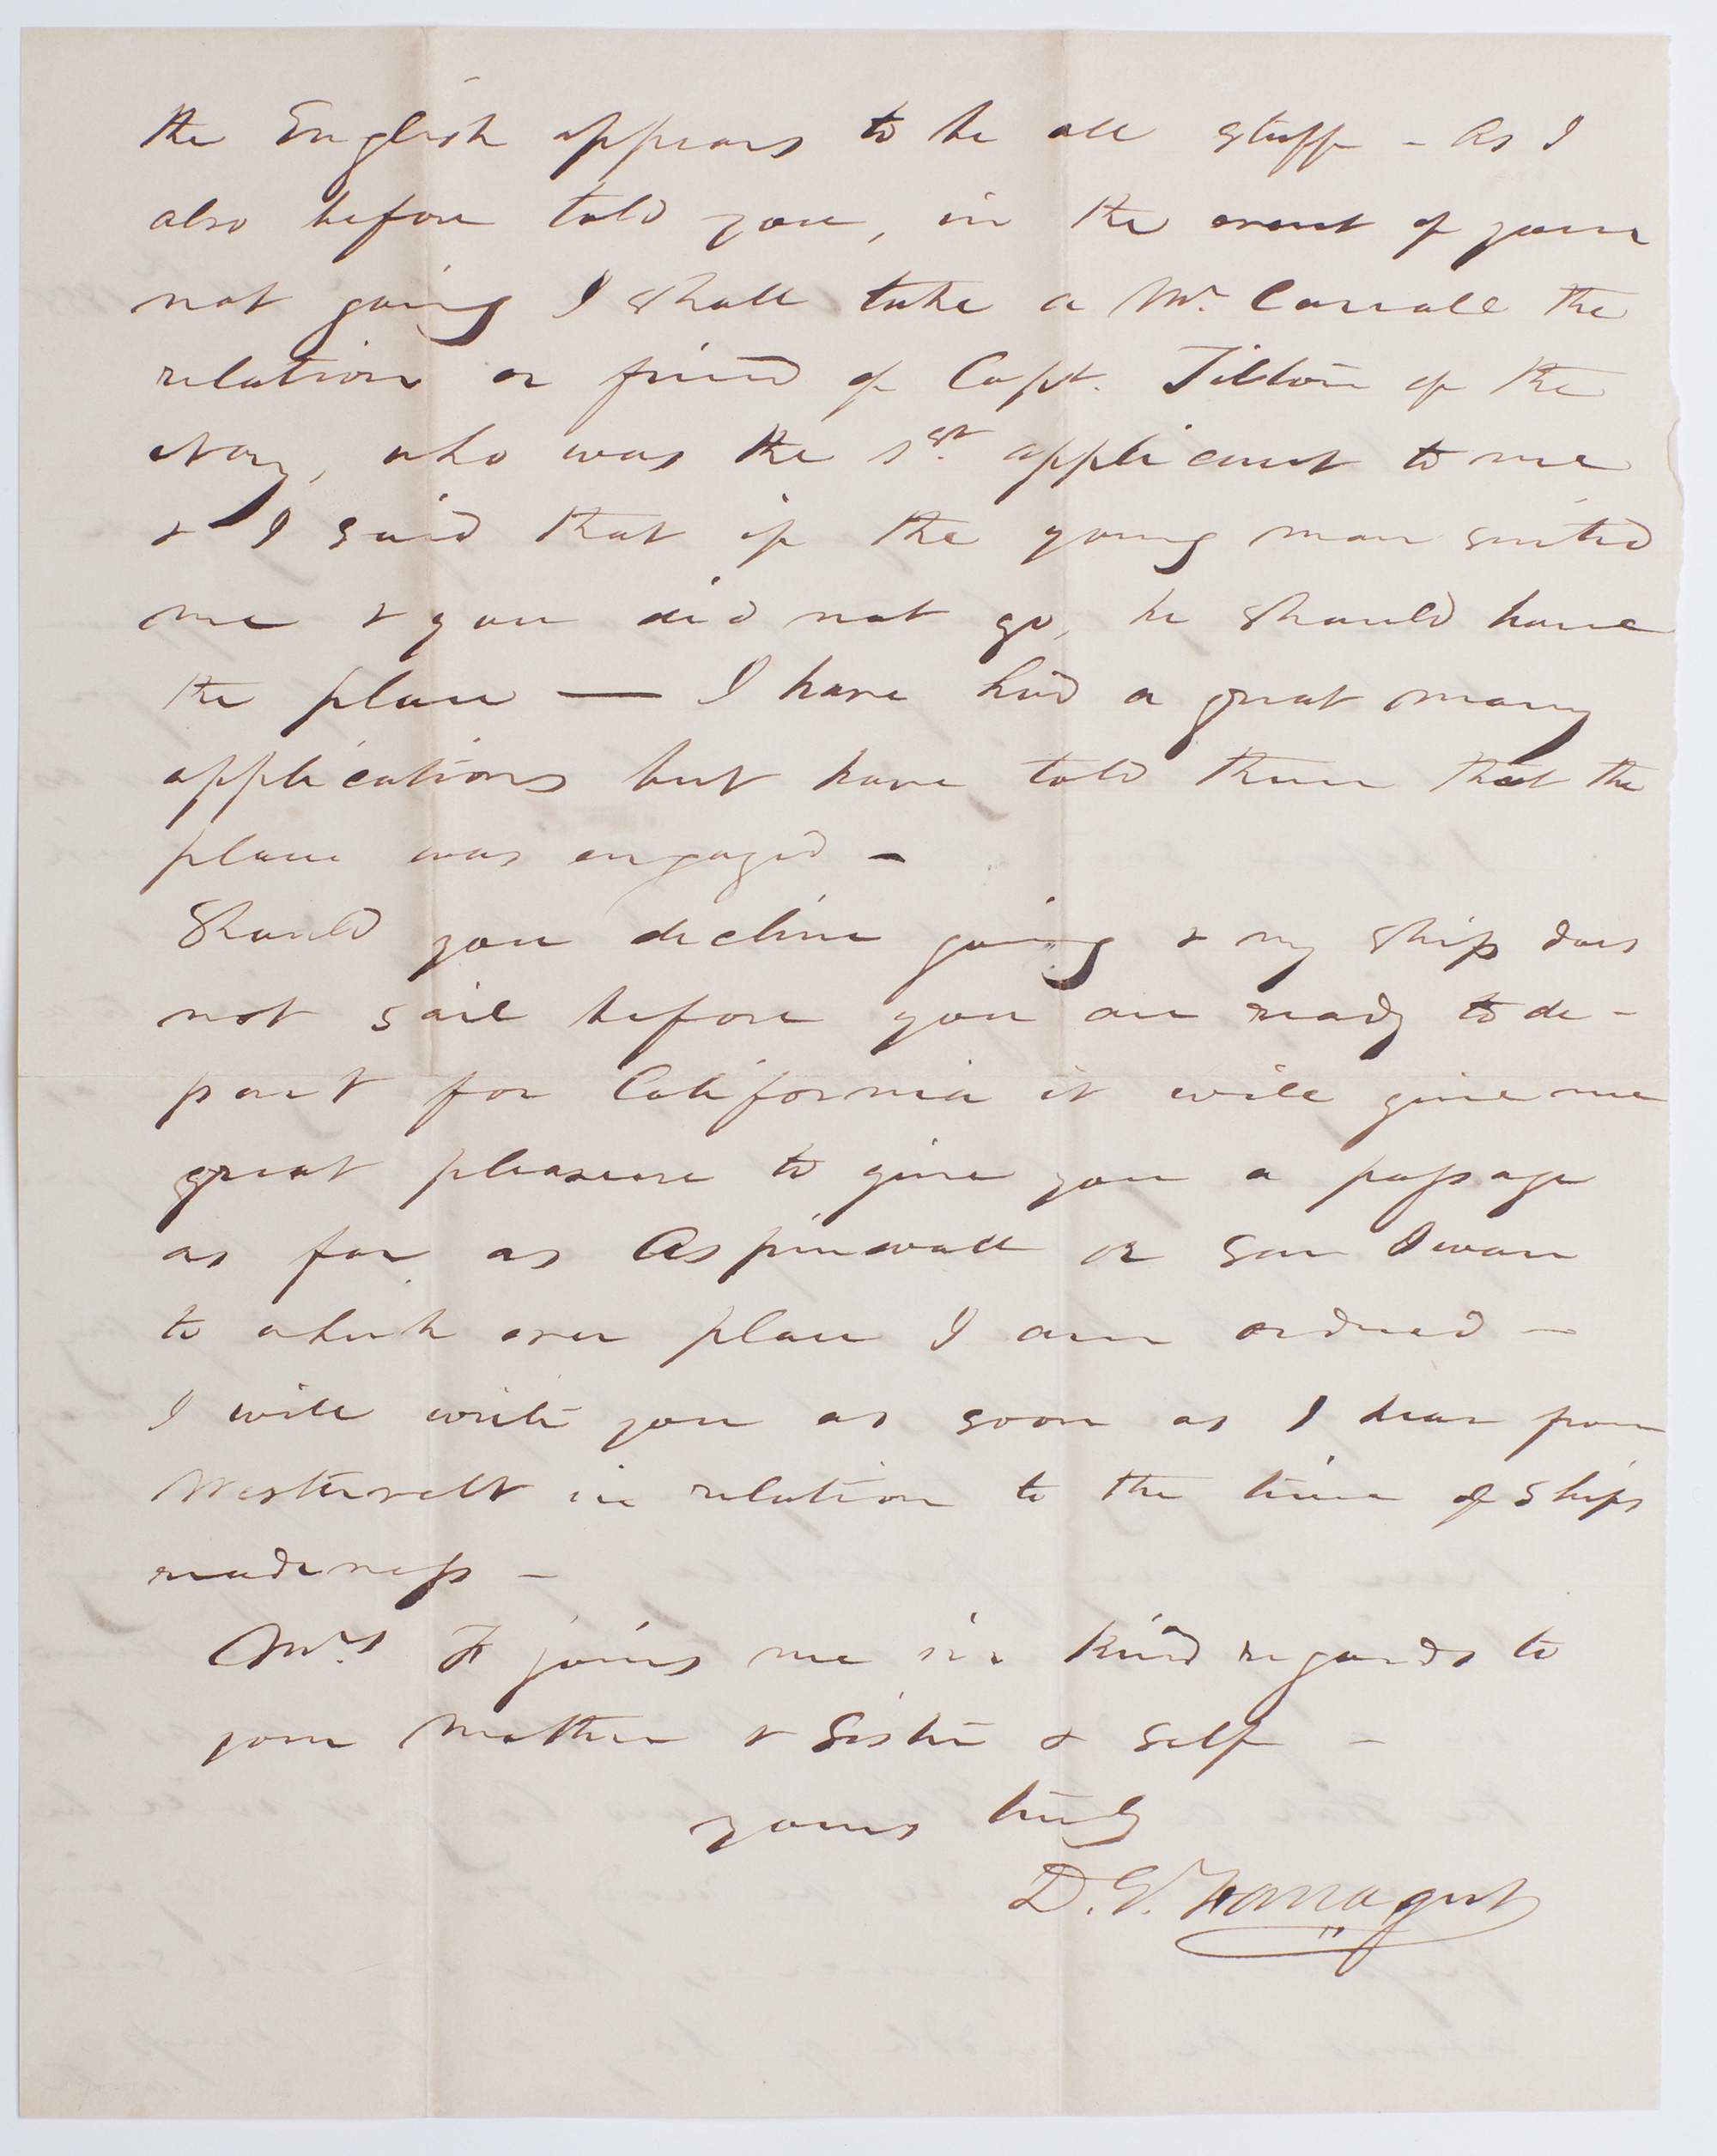 the English appears to be all stuff - As I
also before told you, in the event of your
not going I shall take a Mr. Carroll the
relation or friend of Capt. Tilton of the
Navy, who was the 1st. applicant to me
& I said that if the young man suited
me & you did not go, he should have
the place — I have had a great many
applications but have told them that the
place was engaged -
Should you decline going & my ship does
not sail before you are ready to de-
part for California it will give me
great pleasure to give you a passage
as far as Aspinwall or San Iwan
to which ever place I am ordered -
I will write you as soon as I hear from
Westervelt in relation to the time of ships
readiness -
Mrs. F joins me in kind regards to
your Mother & Sister & self -
yours truly
D. G. Farragut